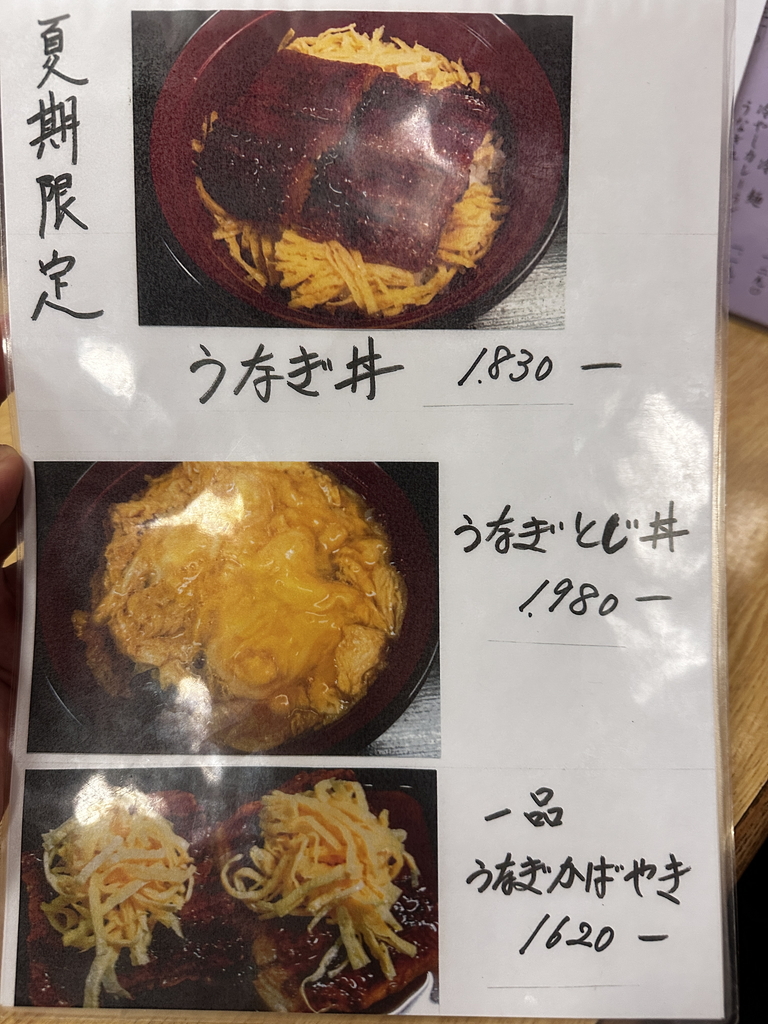 夏期限定
うなぎ丼 1.830ー
うなぎとじ丼
1.980ー
一品
うなぎかばやき
1620ー